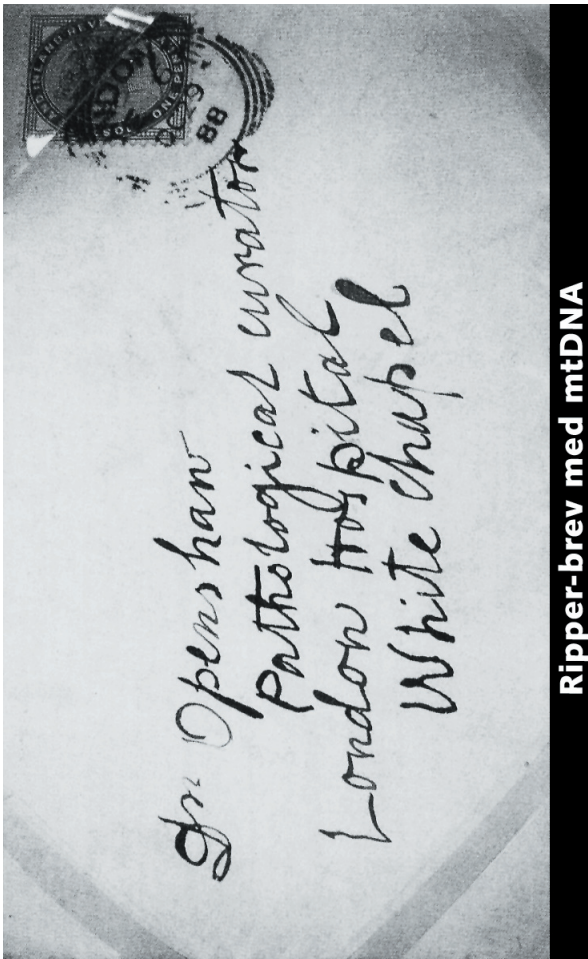 LAND REV
ONE PE
OC 29
88
Dr Openshaw
Pathological curator
London Hospital
White chapel
Ripper-brev med mtDNA